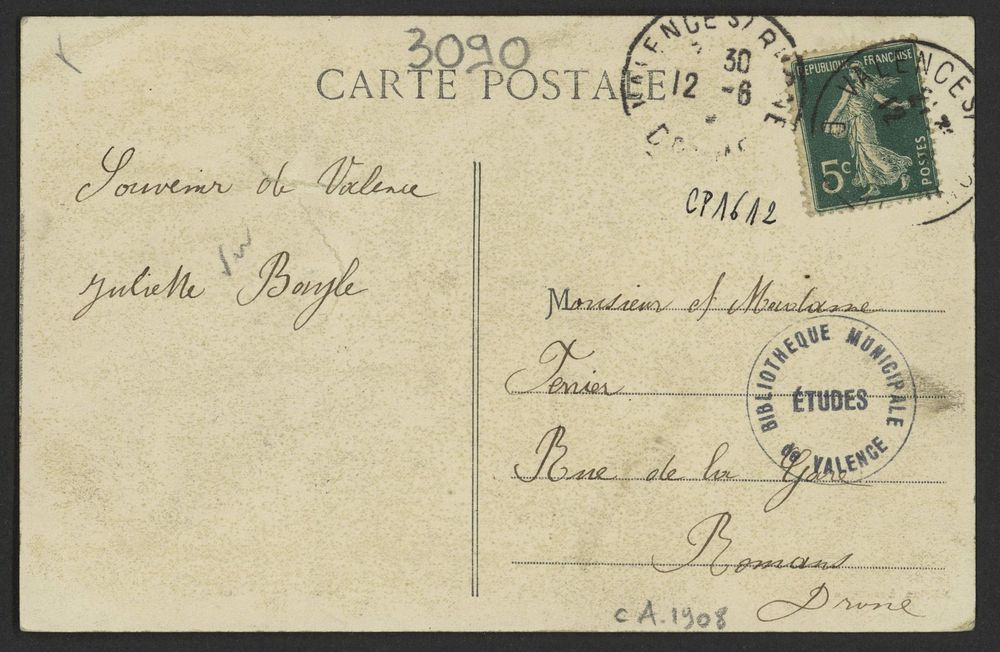 3090
CARTE POSTALE
VALENCE S/ RHONE
30
12 -6
RÉPUBLIQUE FRANÇAISE
5c
POSTES
VALENCE S/
CP1612
Souvenir de Valence
Juliette Bayle
Monsieur et Madame
Ferrier
Rue de la Gare
Romans
Drome
BIBLIOTHEQUE MUNICIPALE
ÉTUDES
de VALENCE
CA.1908